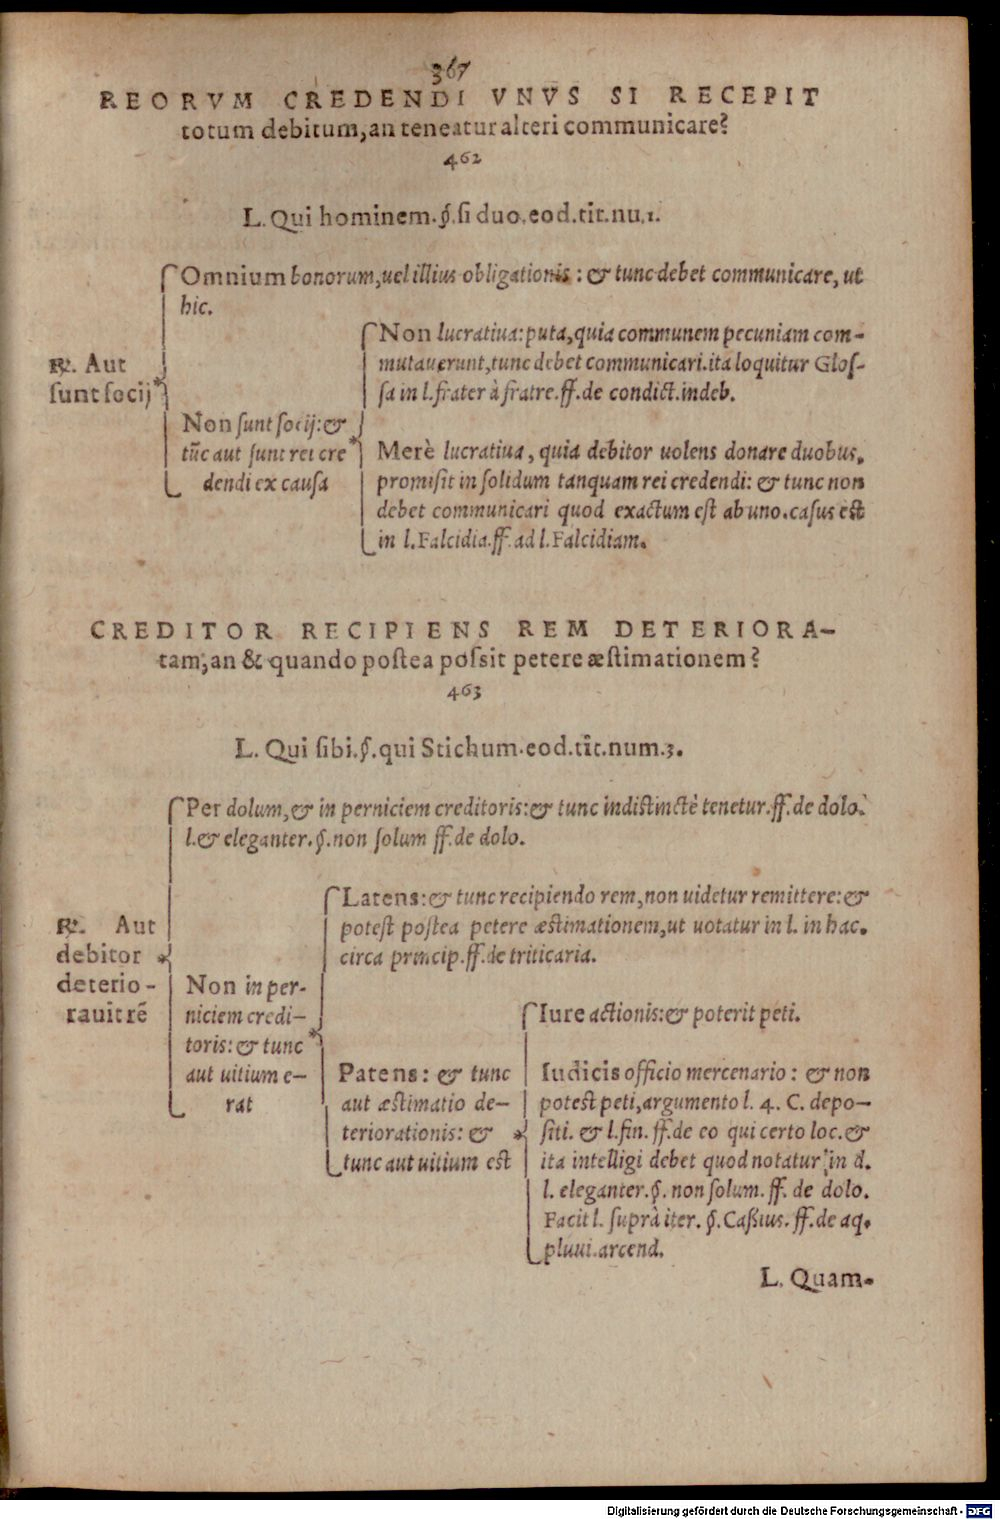 367
REORVM CREDENDI VNVS SI RECEPIT
totum debitum, an teneatur alteri communicare?
462
L. Qui hominem. §. si duo. eod. tit. nu. 1.
Omnium bonorum, uel illius obligationis: & tunc debet communicare, ut
hic.
℞. Aut
sunt socij
Non sunt socij: &
tūc aut sunt rei cre
dendi ex causa
Non lucratiua: puta, quia communem pecuniam com-
mutauerunt, tunc debet communicari. ita loquitur Glos-
sa in l. frater à fratre. ff. de condict. indeb.
Merè lucratiua, quia debitor uolens donare duobus,
promisit in solidum tanquam rei credendi: & tunc non
debet communicari quod exactum est ab uno. casus est
in l. Falcidia. ff. ad l. Falcidiam.
CREDITOR RECIPIENS REM DETERIORA-
tam, an & quando postea possit petere æstimationem?
463
L. Qui sibi. §. qui Stichum. eod. tit. num. 3.
Per dolum, & in perniciem creditoris: & tunc indistinctè tenetur. ff. de dolo.
l. & eleganter. §. non solum ff. de dolo.
℞. Aut
debitor
deterio-
rauit rē
Non in per-
niciem credi-
toris: & tunc
aut uitium e-
rat
Latens: & tunc recipiendo rem, non uidetur remittere: &
potest postea petere æstimationem, ut uotatur in l. in hac.
circa princip. ff. de triticaria.
Patens: & tunc
aut æstimatio de-
teriorationis: &
tunc aut uitium est
Iure actionis: & poterit peti.
Iudicis officio mercenario: & non
potest peti, argumento l. 4. C. depo-
siti. & l. fin. ff. de eo qui certo loc. &
ita intelligi debet quod notatur in d.
l. eleganter. §. non solum. ff. de dolo.
Facit l. suprà iter. §. Cassius. ff. de aq.
pluui. arcend.
L. Quam.
Digitalisierung gefördert durch die Deutsche Forschungsgemeinschaft - DFG